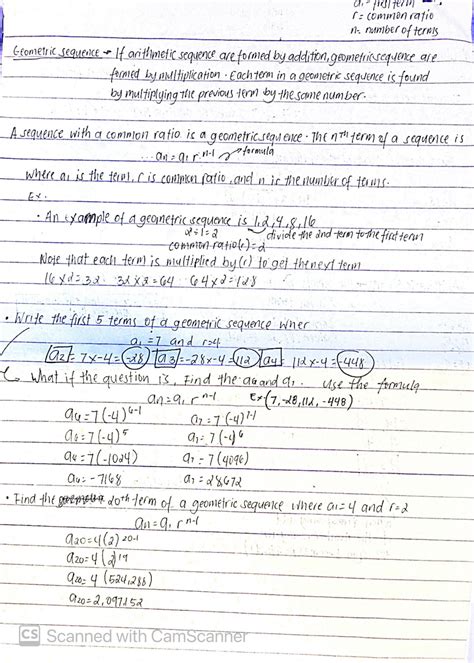 a1 = first term
r = common ratio
n = number of terms
Geometric sequence → If arithmetic sequence are formed by addition, geometric sequence are
formed by multiplication. Each term in a geometric sequence is found
by multiplying the previous term by the same number.
A sequence with a common ratio is a geometric sequence. The nth term of a sequence is
an = a1 r^n-1 → formula
where a1 is the term, r is common ratio, and n is the number of terms.
Ex.
• An example of a geometric sequence is 1,2,4,8,16
2÷1=2 divide the 2nd term to the first term
common ratio(r)=2
Note that each term is multiplied by (r) to get the next term
16x2=32 32x2=64 64x2=128
• Write the first 5 terms of a geometric sequence wher
a1=7 and r=-4
a2 = 7x-4=-28 a3 = -28x-4=112 a4 = 112x-4=-448
What if the question is, Find the a6 and a7. Use the formula
an=a1 r^n-1 Ex(7,-28,112,-448)
a6=7(-4)^6-1 a7=7(-4)^7-1
a6=7(-4)^5 a7=7(-4)^6
a6=7(-1024) a7=7(4096)
a6=-7168 a7=28,672
• Find the 20th term of a geometric sequence where a1=4 and r=2
an=a1 r^n-1
a20=4(2)^20-1
a20=4(2)^19
a20=4(524,288)
a20=2,097,152
CS Scanned with CamScanner